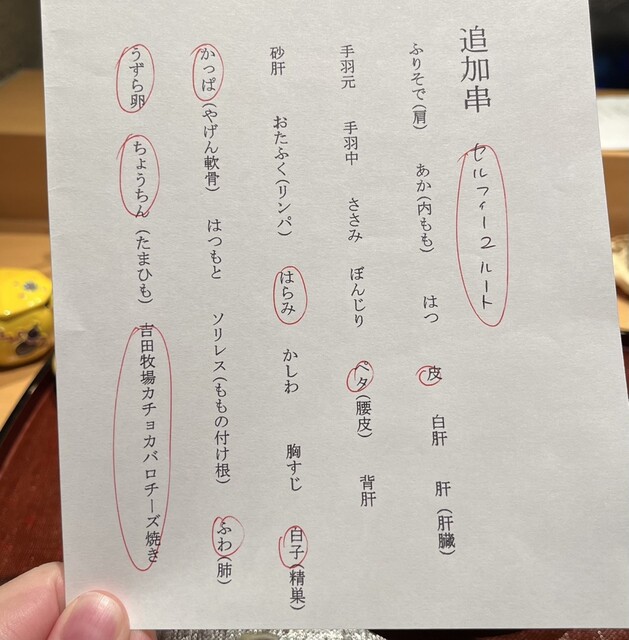 追加串 セルフィーユ ルート
ふりそで(肩) あか(内もも) はつ 皮 白肝 肝(肝臓)
手羽元 手羽中 ささみ ぼんじり ペタ(腰皮) 背肝
砂肝 おたふく(リンパ) はらみ かしわ 胸すじ 白子(精巣)
かっぱ(やげん軟骨) はつもと ソリレス(ももの付け根) ふわ(肺)
うずら卵 ちょうちん(たまひも) 吉田牧場カチョカバロチーズ焼き